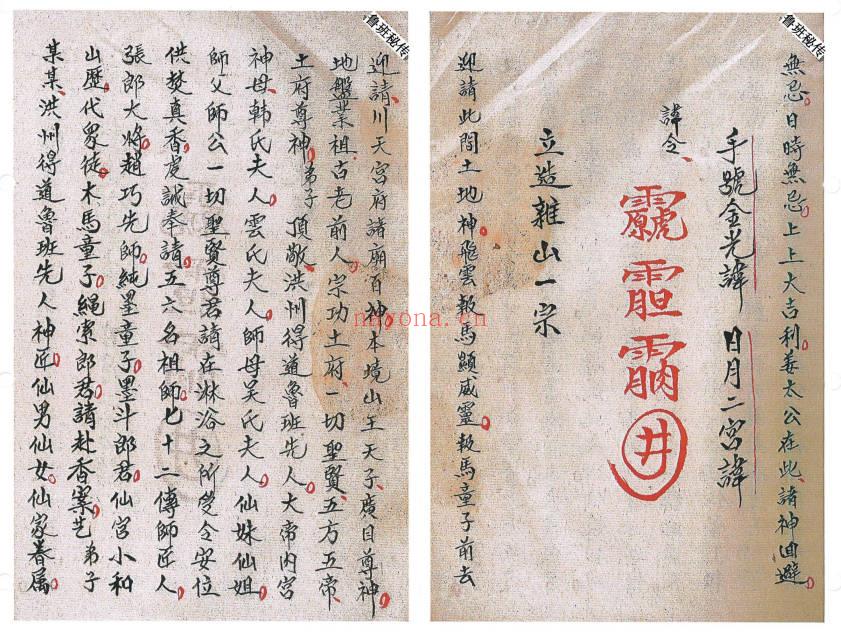 魯班秘传
無忌日時無忌上上大吉利姜太公在此諸神迴避
手號金光諱 日月二宮諱
諱令
井
立造雜山一宗
迎請此間土地神飛雲報馬顯威靈報馬童子前去
魯班秘传
迎請川天宮府諸廟百神本境山王天子廣目尊神
地盤業祖古老前人宗功土府一切聖賢五方五帝
土府尊神弟子頂敬洪州得道魯班先人大帝內宮
神母韓氏夫人雲氏夫人師母吴氏夫人仙妹仙姐
師父師公一切聖賢尊君請在淋浴之所受令安位
供焚真香虔誠奉請五六名祖師七十二傳師匠人
張郎大將趙巧先師純墨童子墨斗郎君仙宮小和
山歷代眾徒木馬童子繩索郎君請赴香案乞弟子
某某洪州得道魯班先人神匠仙男仙女仙家眷属
nnyona.cn